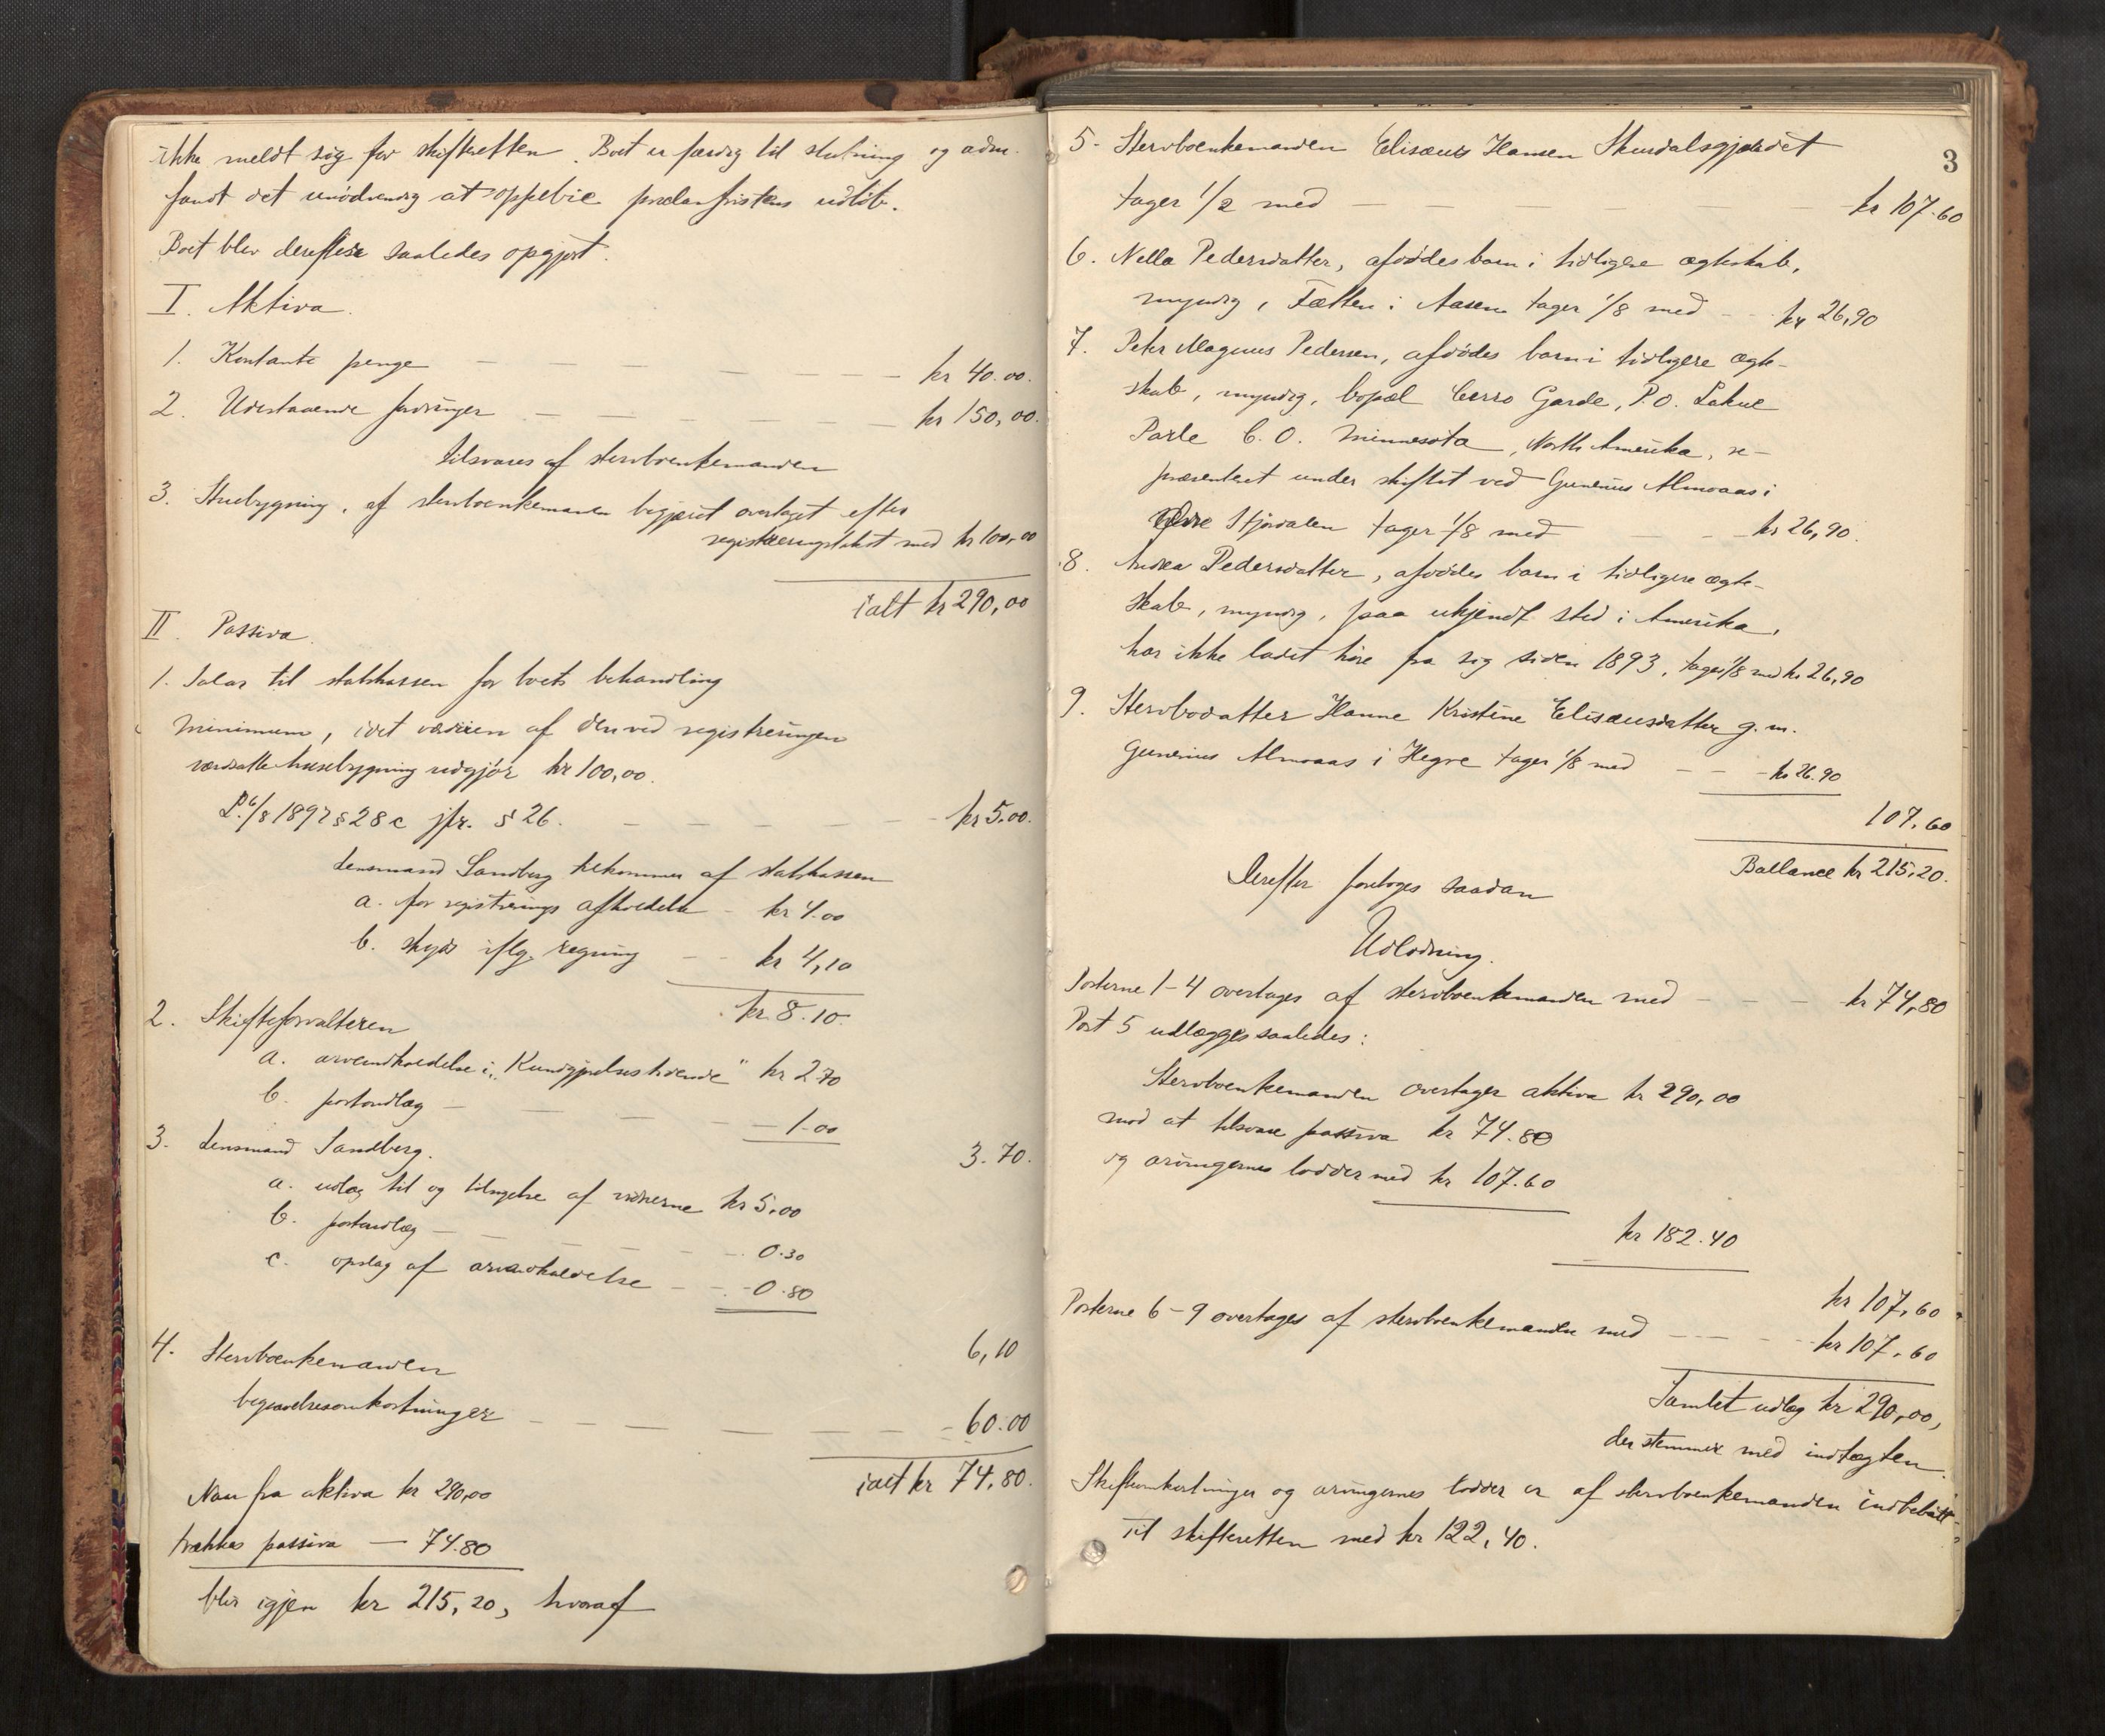 ikke meldt sig for skifteretten. Boet er færdig til slutning og adm.
fandt det unödvendig at oppebie proclamfristens udlöb.
Boet blev derefter saaledes opgjort.
I. Aktiva.
1. Kontante penge — — — — — — kr 40.00.
2. Udestaaende fordringer — — — — — kr 150,00.
tilsvares af stervboenkemanden
3. Stuebygning, af stervboenkemanden begjæret overtaget efter
registreringstakst med kr 100,00
ialt kr 290,00
II. Passiva.
1. Salær til statskassen for boets behandling
Minimum, idet værdien af den ved registreringen
værdsatte husebygning udgjör kr 100,00.
L. 6/8 1897 § 28 c jfr. § 26. — — — — — kr 5.00.
Lensmand Sandberg tilkommer af statskassen
a. for registrerings afholdelse - kr 4.00
b. skyds iflg. regning — - kr 4,10
kr. 8.10.
2. Skifteforvalteren
a. arveindkaldelse i „Kundgjørelsestidende" kr 2.70
b. portoudlæg — — — — — 1.00
3.70.
3. Lensmand Sandberg.
a. udlæg til og tilsigelse af vidnerne kr 5,00
b. portoudlæg — — — — — 0.30
c. opslag af arveindkaldelse — — - 0.80
6,10
4. Stervboenkemanden
begravelsesomkostninger — — — — — — 60.00
ialt kr 74,80.
Naar fra aktiva kr 290,00
trækkes passiva — 74.80
blir igjen kr 215,20, hvoraf
3
5. Stervboenkemanden Elisæus Hansen Skurdalsgjærdet
tager 1/2 med — — — — — kr 107.60
6. Nella Pedersdatter, afdödes barn i tidligere ægteskab,
myndig, Fætten i Aasen tager 1/8 med - - kr 26,90
7. Peter Magnus Pedersen, afdödes barn i tidligere ægte-
skab, myndig, bopæl Cerro Garde, P.O. Lakue
Parle C.O. Minnesota, North Amerika, re-
præsenteret under skiftet ved Gunerius Almoaas i
Övre Stjördalen tager 1/8 med — - - kr 26,90.
8. Andrea Pedersdatter, afdödes barn i tidligere ægte-
skab, myndig, paa ukjendt sted i Amerika,
har ikke ladet höre fra sig siden 1893, tager 1/8 med kr 26,90
9. Stervbodatter Hanne Kristine Elisæusdatter g.m.
Gunerius Almoaas i Hegre tager 1/8 med — — - kr 26.90
107,60
Ballance kr 215,20.
Derefter foretoges saadan
Udlodning.
Posterne 1-4 overtages af stervboenkemanden med - — - kr 74,80
Post 5 udlægges saaledes:
Stervboenkemanden overtager aktiva kr 290,00
mod at tilsvare passiva kr 74.80
og arvingernes lodder med kr 107.60
kr 182.40
kr 107,60
Posterne 6-9 overtages af stervboenkemanden med — - — - - kr 107,60
Samlet udlæg kr 290,00,
der stemmer med indtægten.
Skifteomkostninger og arvingernes lodder er af stervboenkemanden indbetalt
til skifteretten med kr 122,40.